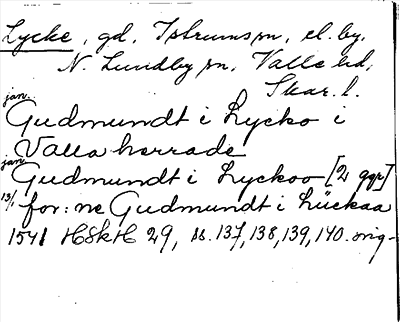 Lycke, gd, Istrums sn, el. by,
N. Lundby sn, Valle hd,
Skar. l.
jan. Gudmundt i Lycko i
Valla herrade
jan Gudmundt i Lyckoo [2 ggr]
13/1 for:ne Gudmundt i Lückaa
1541 HSkH 29, ss. 137, 138, 139, 140. orig-